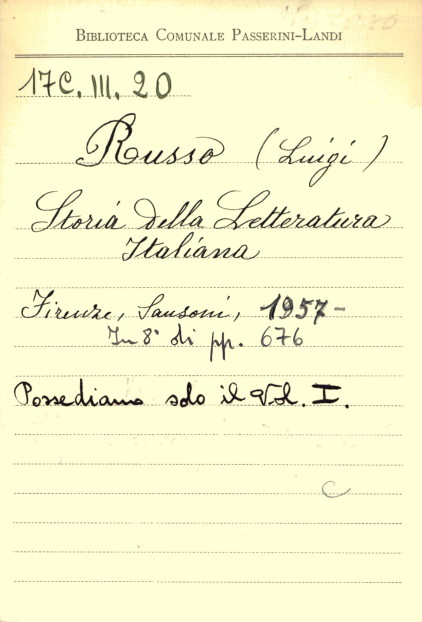 BIBLIOTECA COMUNALE PASSERINI-LANDI
17C. III. 20
Russo (Luigi)
Storia della Letteratura
Italiana
Firenze, Sansoni, 1957-
In 8° di pp. 676
Possediamo solo il Vol. I.
C